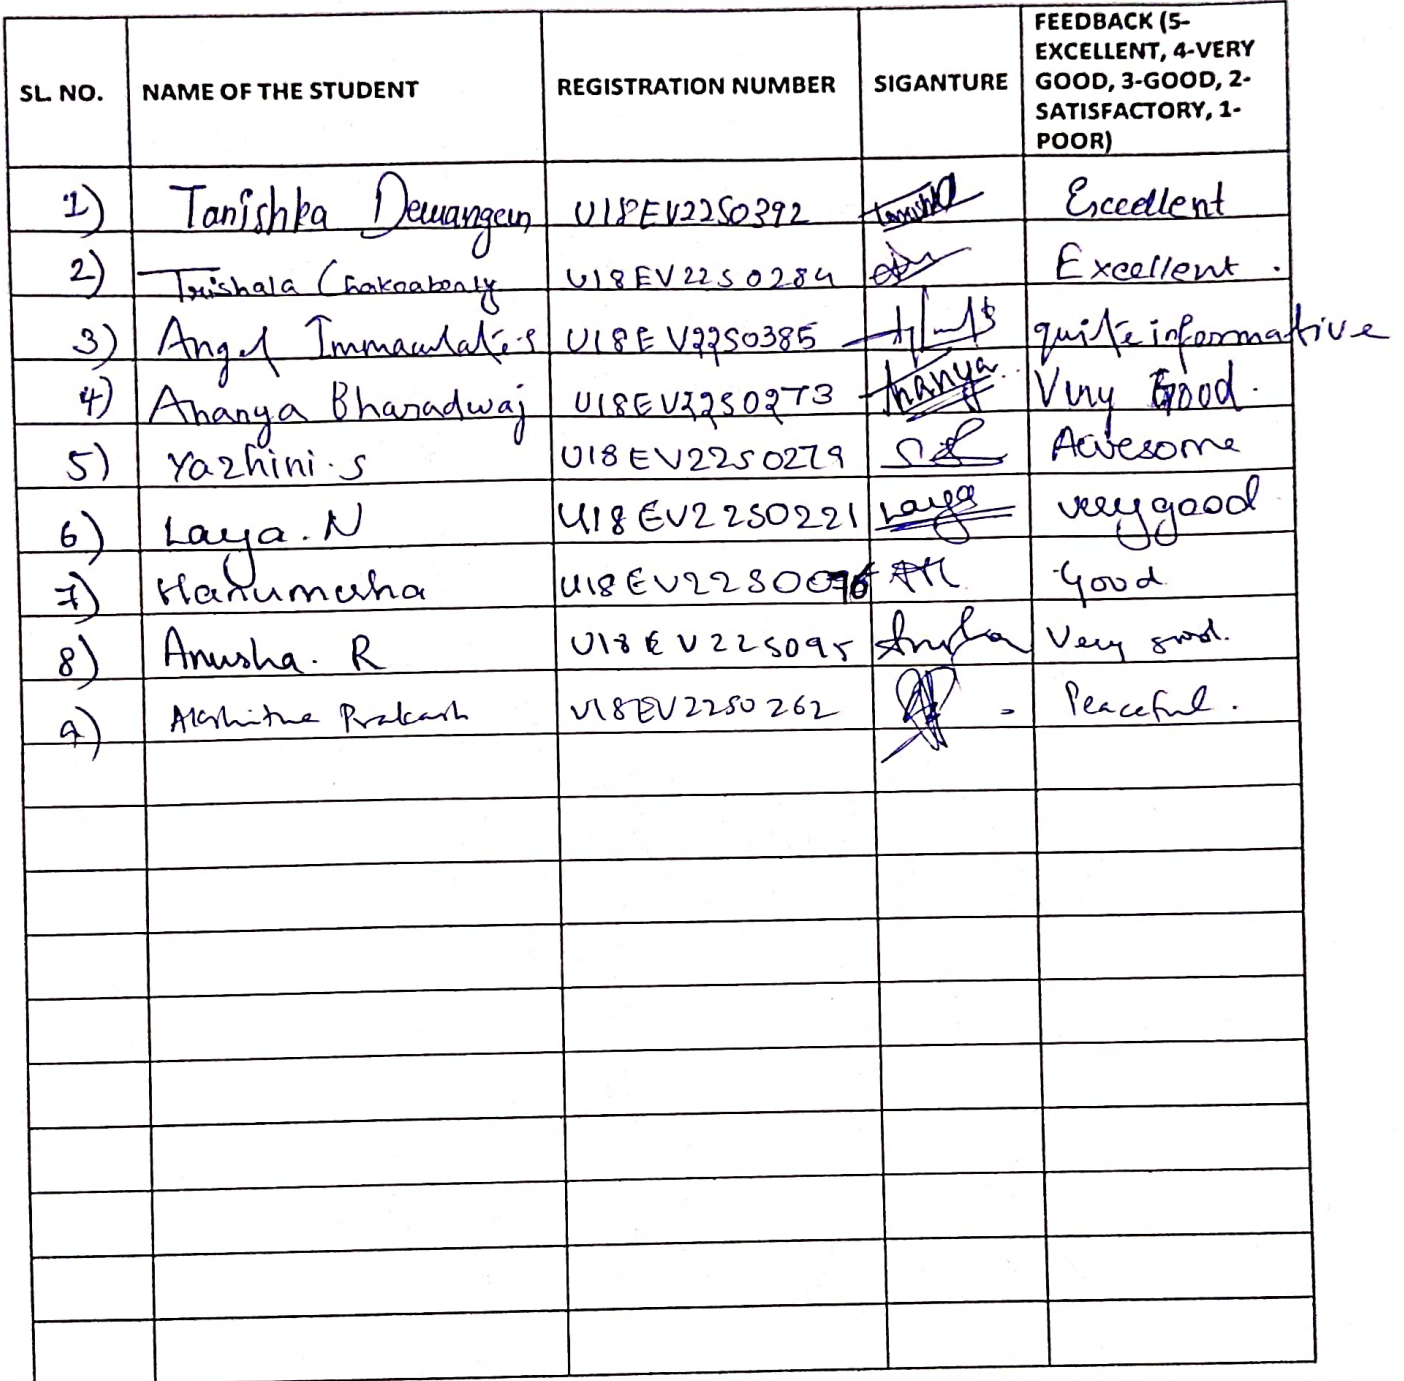 SL. NO. NAME OF THE STUDENT REGISTRATION NUMBER SIGANTURE FEEDBACK (5-
EXCELLENT, 4-VERY
GOOD, 3-GOOD, 2-
SATISFACTORY, 1-
POOR)
1) Tanishka Dewangan U18EV22S0392 Excellent
2) Trishala Chakraborty U18EV22S0284 Excellent.
3) Angel Immaculate.S U18EV22S0385 quite informative
4) Ananya Bharadwaj U18EV22S0273 hanya Very Good.
5) Yazhini.S U18EV22S0279 Awesome
6) Laya.N U18EV22S0221 Laya very good
7) Hanumesha U18EV22S0076 Good
8) Anusha. R U18EV22S095 Very good.
9) Prakash U18EV22S0262 Peaceful.